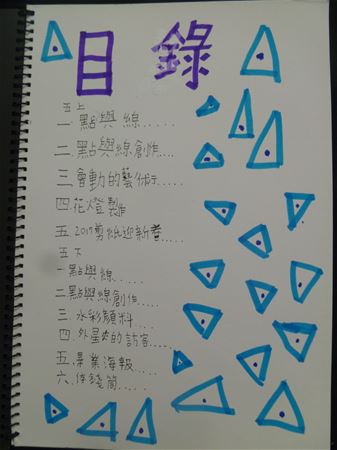 目錄
五上
一.點與線.....
二.點與線創作....
三.會動的藝術.....
四.花燈製作
五.2017剪紙迎新春.....
五下
一.點與線.....
二.點與線創作.....
三.水彩顏料....
四.外星來的訪客....
五.畢業海報.....
六.存錢筒.....